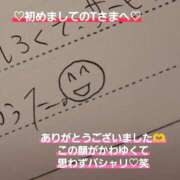 ♡初めましてのTさまへ♡
ありがとうございました🫶
この顔がかわゆくて
思わずパシャリ♡笑